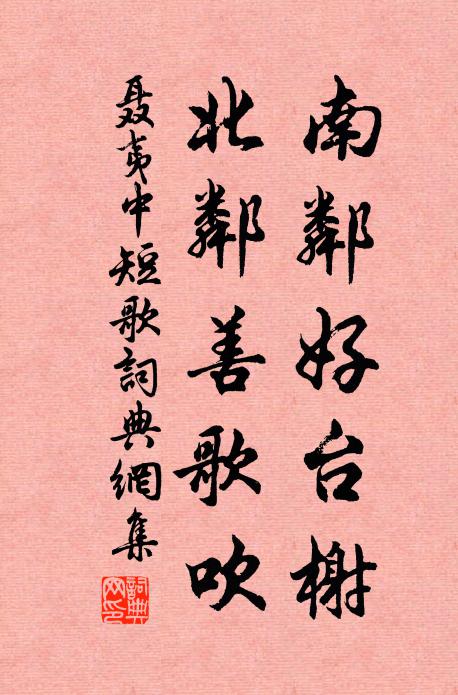 南鄰好台榭
北鄰善歌吹
聂夷中短歌詞典網集
詞典网印